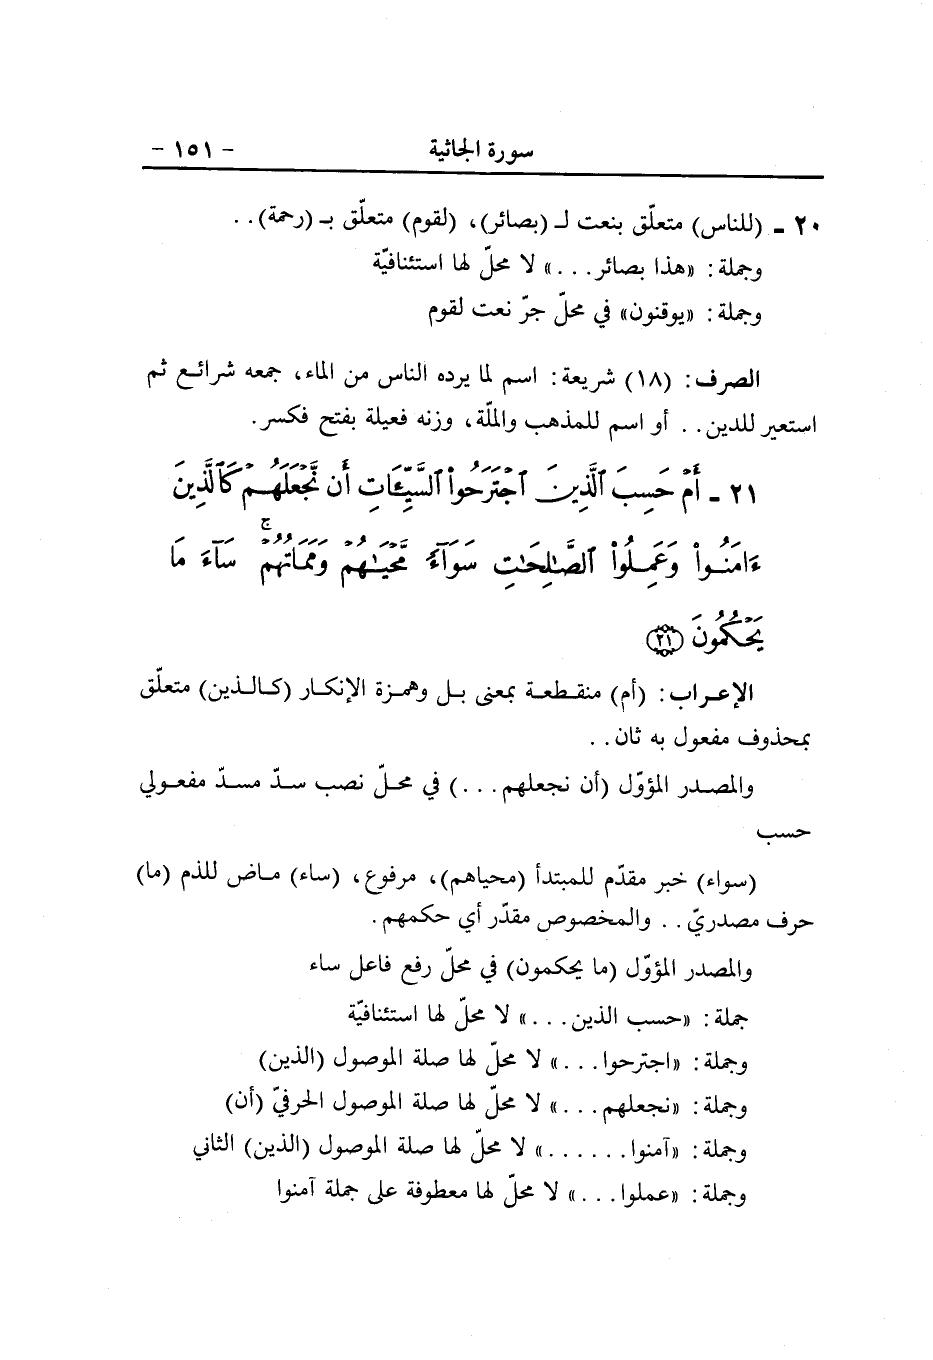 سورة الجاثية - ١٥١ -
٢٠ ـ (للناس) متعلّق بنعت لـ (بصائر)، (لقوم) متعلّق بـ (رحمة) . .
وجملة: «هذا بصائر. . .» لا محلّ لها استئنافيّة
وجملة: «يوقنون» في محلّ جرّ نعت لقوم
الصرف: (١٨) شريعة: اسم لما يرده الناس من الماء، جمعه شرائع ثم
استعير للدين. . أو اسم للمذهب والملّة، وزنه فعيلة بفتح فكسر.
٢١ ـ أَمْ حَسِبَ ٱلَّذِينَ ٱجْتَرَحُوا۟ ٱلسَّيِّـَٔاتِ أَن نَّجْعَلَهُمْ كَٱلَّذِينَ
ءَامَنُوا۟ وَعَمِلُوا۟ ٱلصَّٰلِحَٰتِ سَوَآءً مَّحْيَاهُمْ وَمَمَاتُهُمْ ۚ سَآءَ مَا
يَحْكُمُونَ ﴿٢١﴾
الإعراب: (أم) منقطعة بمعنى بل وهمزة الإنكار (كالذين) متعلّق
بمحذوف مفعول به ثان. .
والمصدر المؤوّل (أن نجعلهم. . .) في محلّ نصب سدّ مسدّ مفعولي
حسب
(سواء) خبر مقدّم للمبتدأ (محياهم)، مرفوع، (ساء) ماض للذم (ما)
حرف مصدريّ. . والمخصوص مقدّر أي حكمهم.
والمصدر المؤوّل (ما يحكمون) في محلّ رفع فاعل ساء
جملة: «حسب الذين. . .» لا محلّ لها استئنافيّة
وجملة: «اجترحوا. . .» لا محلّ لها صلة الموصول (الذين)
وجملة: «نجعلهم. . .» لا محلّ لها صلة الموصول الحرفيّ (أن)
وجملة: «آمنوا. . . . . .» لا محلّ لها صلة الموصول (الذين) الثاني
وجملة: «عملوا. . .» لا محلّ لها معطوفة على جملة آمنوا